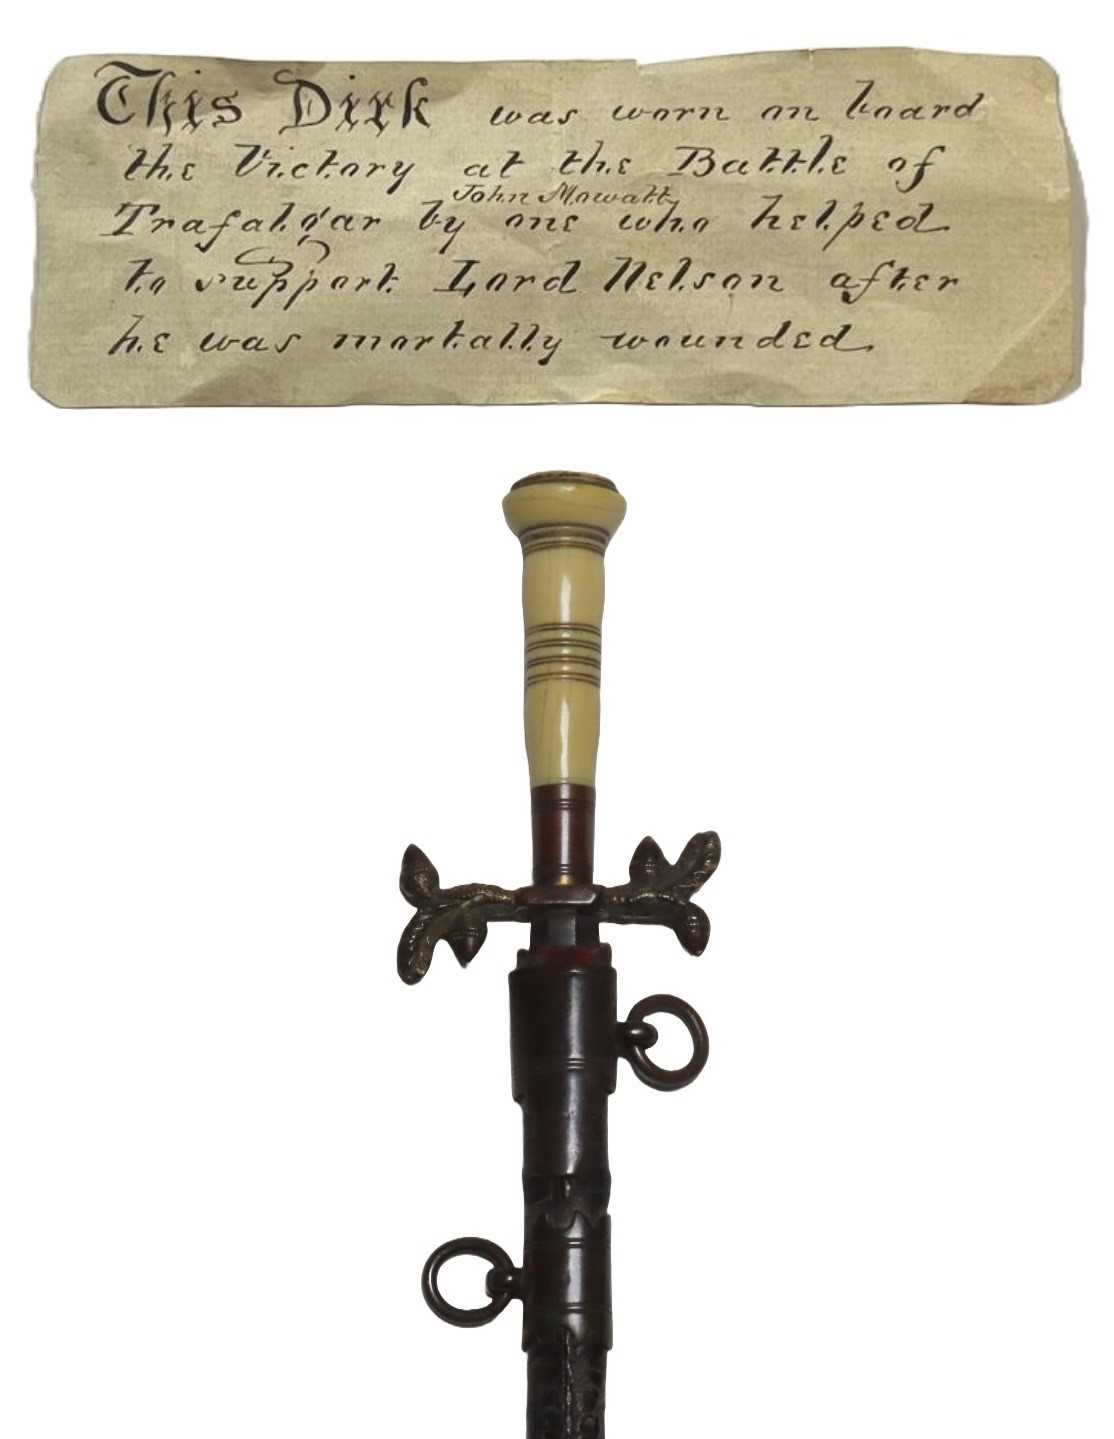 This Dirk was worn on board
the Victory at the Battle of
John Mowatt
Trafalgar by one who helped
to support Lord Nelson after
he was mortally wounded.